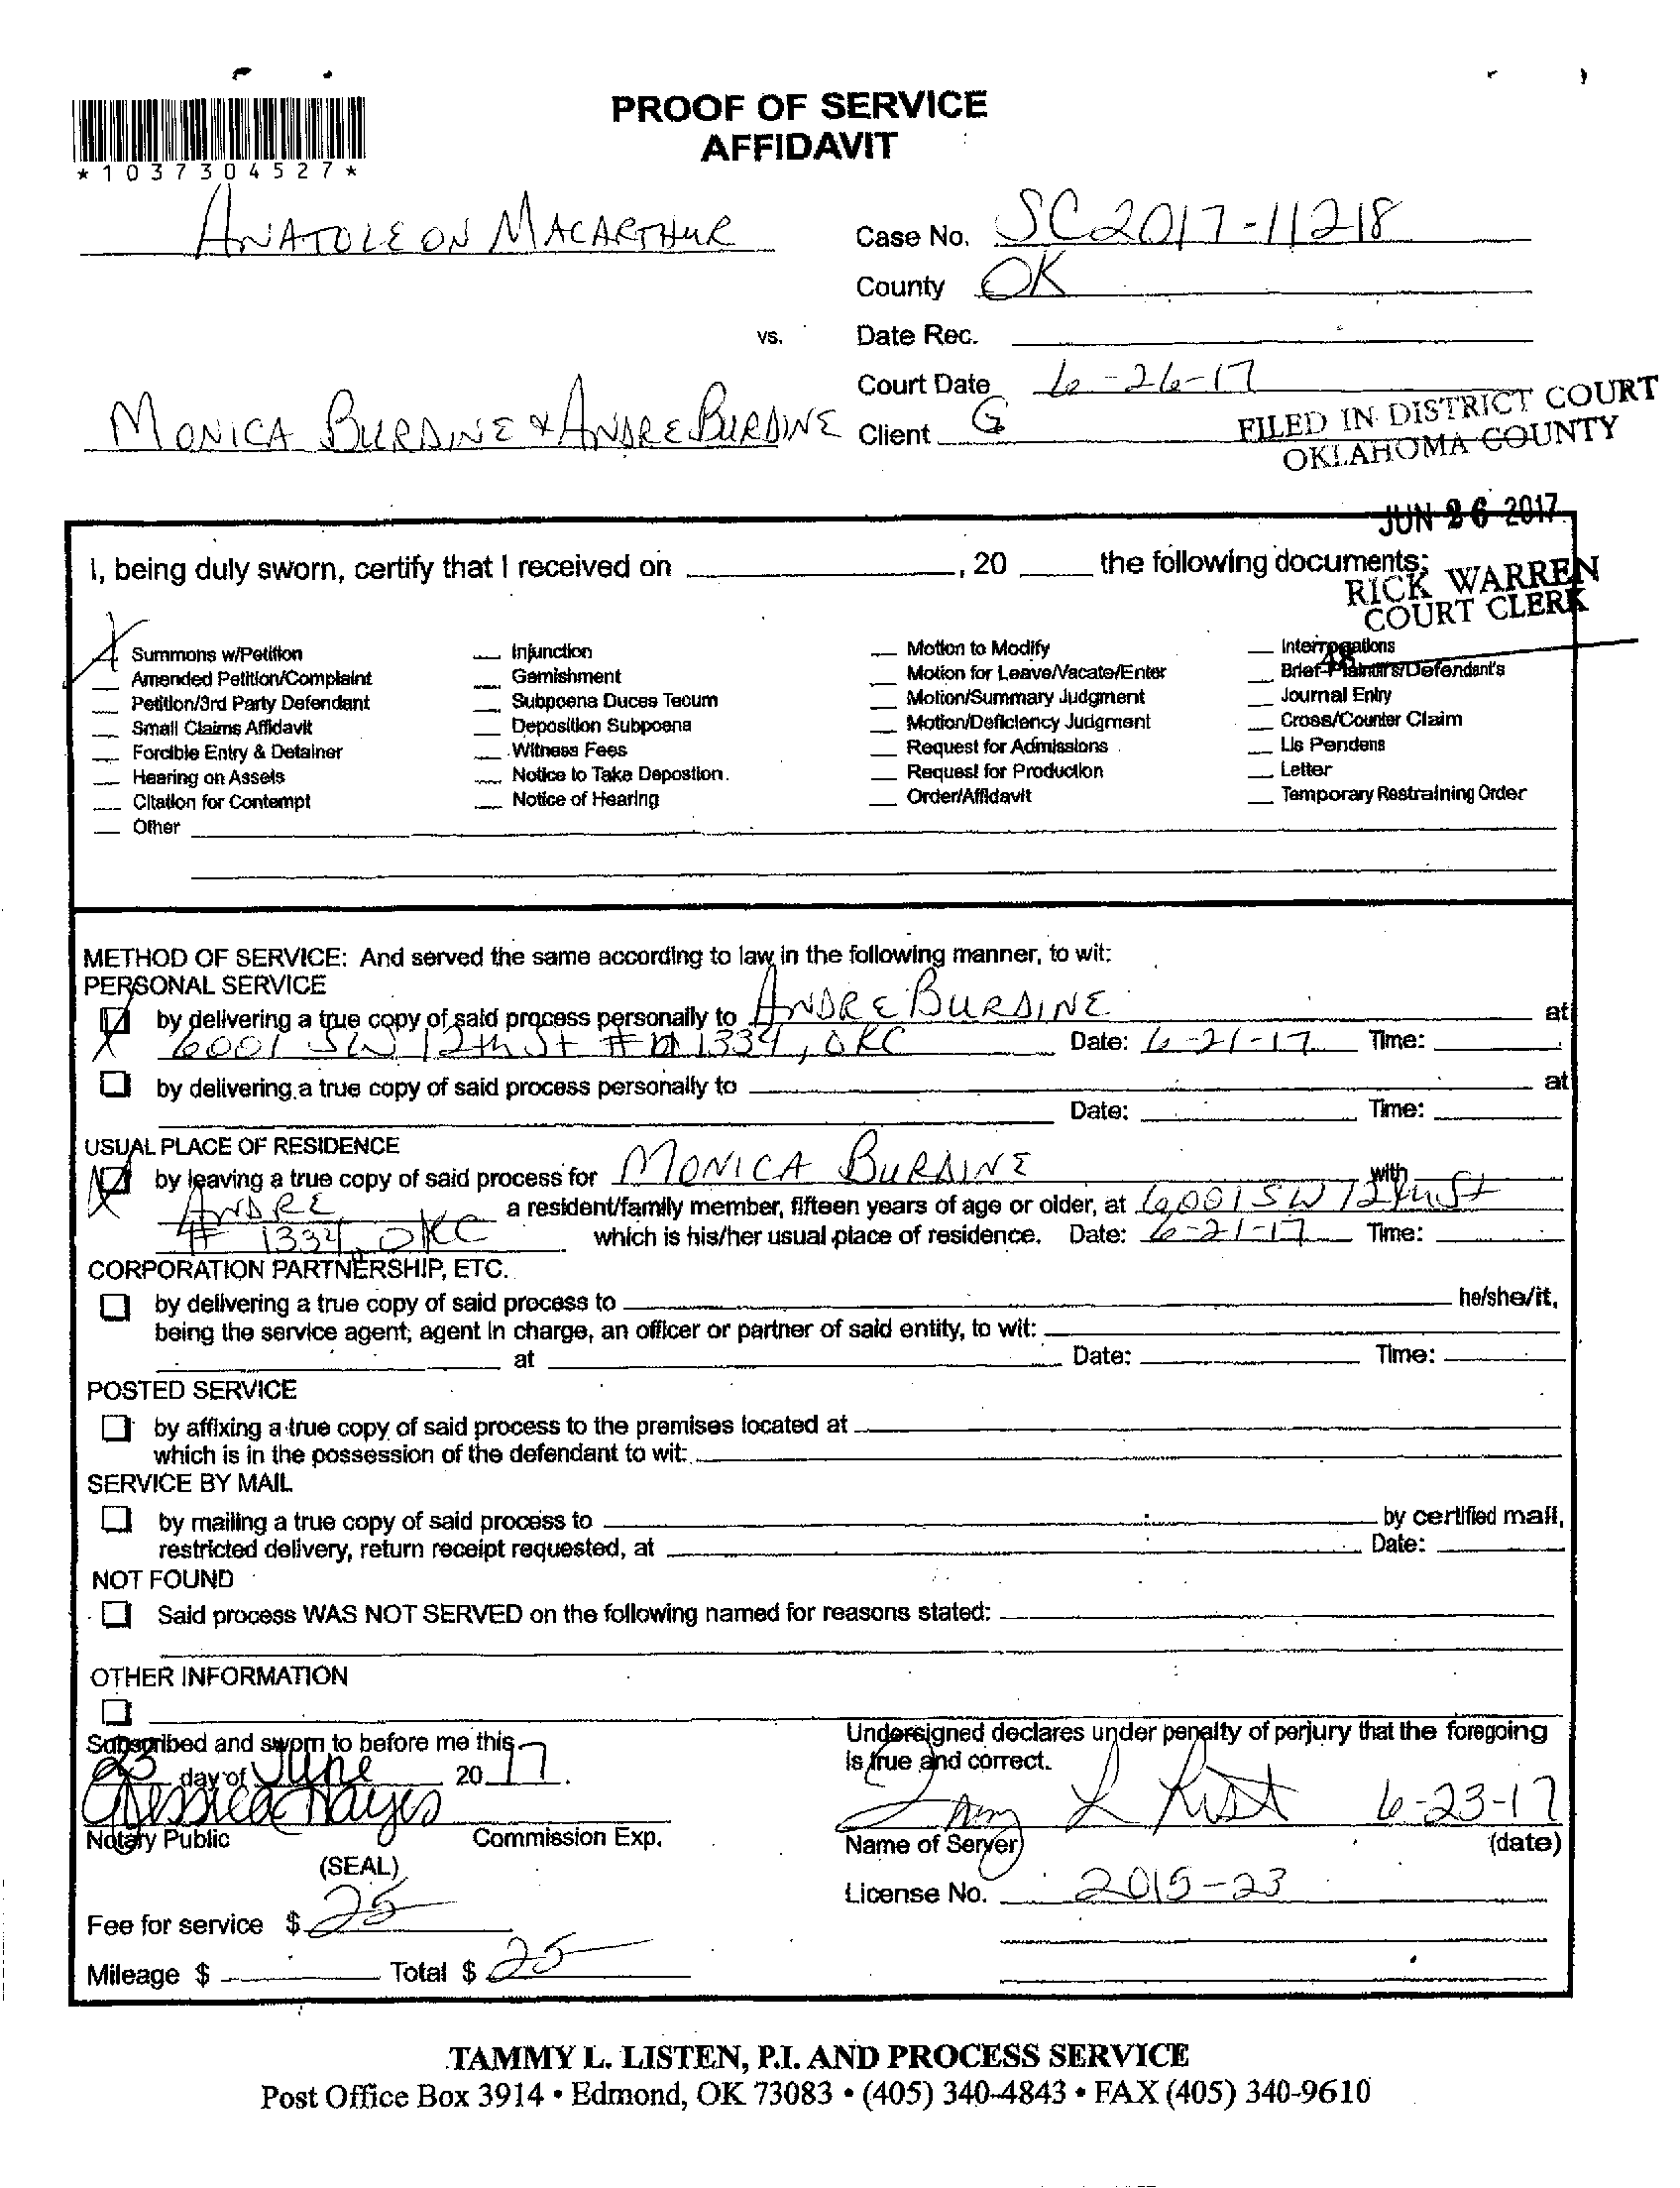 PROOF OF SERVICE
AFFIDAVIT
*1037304527*
ANATOLE ON MACARTHUR
Case No. SC2017-11218
County OK
vs.
Date Rec.
Court Date 6-26-17
MONICA BURDINE & ANDRE BURDINE
Client G
FILED IN DISTRICT COURT
OKLAHOMA COUNTY
JUN 26 2017
RICK WARREN
COURT CLERK
48
I, being duly sworn, certify that I received on ____, 20 ____ the following documents:
X Summons w/Petition
Amended Petition/Complaint
Petition/3rd Party Defendant
Small Claims Affidavit
Forcible Entry & Detainer
Hearing on Assets
Citation for Contempt
Other
Injunction
Garnishment
Subpoena Duces Tecum
Deposition Subpoena
Witness Fees
Notice to Take Depostion.
Notice of Hearing
Motion to Modify
Motion for Leave/Vacate/Enter
Motion/Summary Judgment
Motion/Deficiency Judgment
Request for Admissions
Request for Production
Order/Affidavit
Interrogations
Brief-Plaintiff's/Defendant's
Journal Entry
Cross/Counter Claim
Lis Pendens
Letter
Temporary Restraining Order
METHOD OF SERVICE: And served the same according to law in the following manner, to wit:
PERSONAL SERVICE
by delivering a true copy of said process personally to ANDRE BURDINE at
6001 SW 12th St # 1334, OKC Date: 6-21-17 Time:
by delivering a true copy of said process personally to at
Date: Time:
USUAL PLACE OF RESIDENCE
by leaving a true copy of said process for MONICA BURDINE with
ANDRE a resident/family member, fifteen years of age or older, at 6001 SW 12th St
# 1334, OKC which is his/her usual place of residence. Date: 6-21-17 Time:
CORPORATION PARTNERSHIP, ETC.
by delivering a true copy of said process to he/she/it,
being the service agent, agent in charge, an officer or partner of said entity, to wit:
at Date: Time:
POSTED SERVICE
by affixing a true copy of said process to the premises located at
which is in the possession of the defendant to wit:
SERVICE BY MAIL
by mailing a true copy of said process to by certified mail,
restricted delivery, return receipt requested, at Date:
NOT FOUND
Said process WAS NOT SERVED on the following named for reasons stated:
OTHER INFORMATION
Subscribed and sworn to before me this
23 day of June 2017.
Jessica Hayes
Notary Public Commission Exp.
(SEAL)
Fee for service $ 25
Mileage $ Total $ 25
Undersigned declares under penalty of perjury that the foregoing
is true and correct.
6-23-17
Name of Server (date)
License No. 2015-23
TAMMY L. LISTEN, P.I. AND PROCESS SERVICE
Post Office Box 3914 • Edmond, OK 73083 • (405) 340-4843 • FAX (405) 340-9610